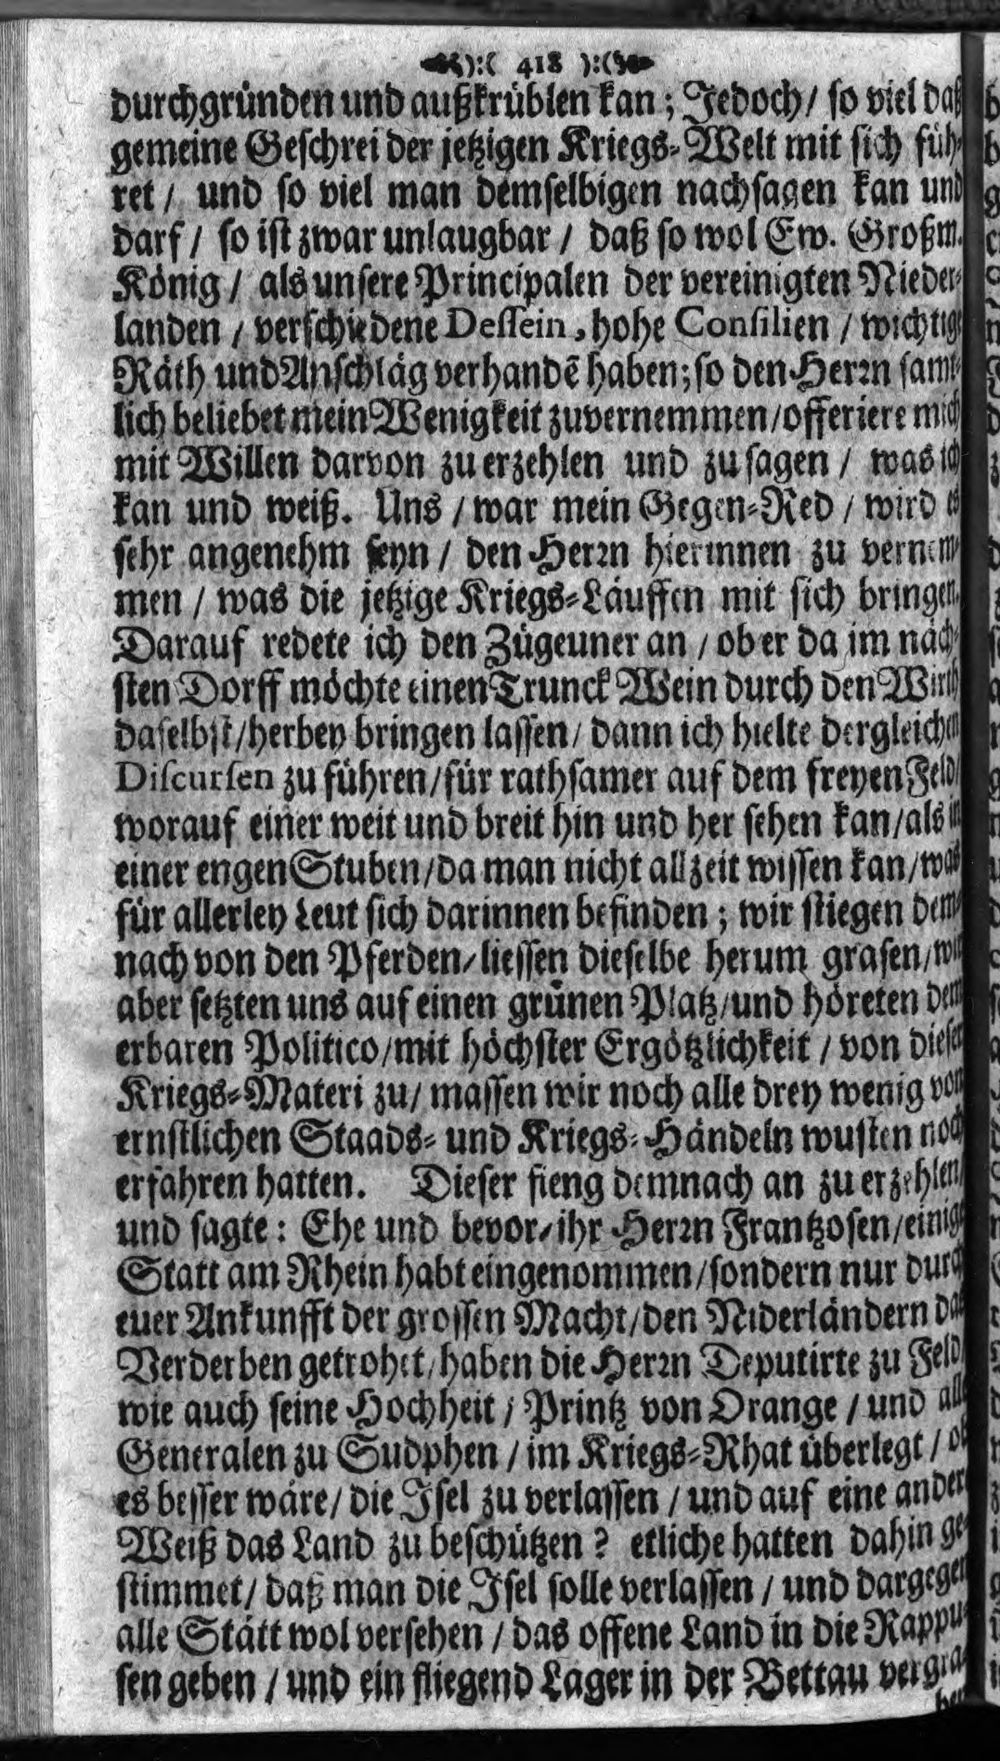 ):( 418 ):(
durchgründen und außkrüblen kan; Jedoch/ so viel daß
gemeine Geschrei der jetzigen Kriegs-Welt mit sich füh-
ret/ und so viel man demselbigen nachsagen kan und
darf/ so ist zwar unlaugbar/ daß so wol Ew. Großm.
König/ als unsere Principalen der vereinigten Nieder-
landen/ verschiedene Dessein, hohe Consilien/ wichtige
Räth und Anschläg verhandẽ haben; so den Herꝛn samt-
lich beliebet mein Wenigkeit zuvernemmen/ offeriere mich
mit Willen darvon zu erzehlen und zu sagen/ was ich
kan und weiß. Uns/ war mein Gegen-Red/ wird es
sehr angenehm seyn/ den Herꝛn hierinnen zu vernem-
men/ was die jetzige Kriegs-Läuffen mit sich bringen.
Darauf redete ich den Zügeuner an/ ob er da im näch-
sten Dorff möchte einen Trunck Wein durch den Wirth
daselbst/ herbey bringen lassen/ dann ich hielte dergleichen
Discursen zu führen/ für rathsamer auf dem freyen Feld/
worauf einer weit und breit hin und her sehen kan/ als in
einer engen Stuben/ da man nicht allzeit wissen kan/ was
für allerley Leut sich darinnen befinden; wir stiegen dem-
nach von den Pferden/ liessen dieselbe herum grasen/ wir
aber setzten uns auf einen grünen Platz/ und höreten dem
erbaren Politico/ mit höchster Ergötzlichkeit/ von dieser
Kriegs-Materi zu/ massen wir noch alle drey wenig von
ernstlichen Staads- und Kriegs-Händeln wusten noch
erfahren hatten. Dieser fieng demnach an zu erzehlen/
und sagte: Ehe und bevor/ ihr Herꝛn Frantzosen/ einige
Statt am Rhein habt eingenommen/ sondern nur durch
euer Ankunfft der grossen Macht/ den Niderländern das
Verderben getrohet/ haben die Herꝛn Deputirte zu Feld/
wie auch seine Hochheit/ Printz von Orange/ und alle
Generalen zu Sudphen/ im Kriegs-Rhat überlegt/ ob
es besser wäre/ die Isel zu verlassen/ und auf eine andere
Weiß das Land zu beschützen? etliche hatten dahin ge-
stimmet/ daß man die Isel solle verlassen/ und dargegen
alle Stätt wol versehen/ das offene Land in die Rappu-
sen geben/ und ein fliegend Lager in der Bettau vergra-